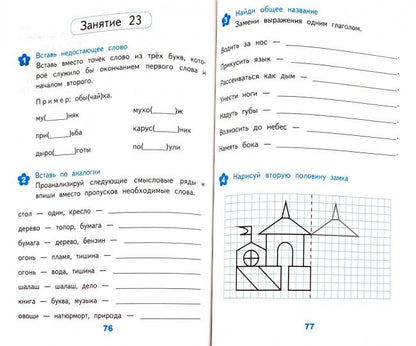 Занятие 23
1 Вставь недостающее слово
Вставь вместо точек слово из трёх букв, кото-
рое служило бы окончанием первого слова и
началом второго.
Пример: обы(чай)ка.
му(____)няк мухо(____)ж
при(____)ьба карус(____)ник
дыро(____)готы по(____)ули
2 Вставь по аналогии
Проанализируй следующие смысловые ряды и
впиши вместо пропусков необходимые слова.
стол — один, кресло —
дерево — топор, бумага —
бумага — дерево, бензин —
огонь — пламя, тишина —
огонь — вода, тишина —
шалаш — шалаш, дело —
книга — буква, музыка —
овощи — натюрморт, природа —
76
3 Найди общее название
Замени выражения одним глаголом.
Водить за нос —
Прикусить язык —
Рассеиваться как дым —
Унести ноги —
Надуть губы —
Возносить до небес —
Намять бока —
4 Нарисуй вторую половину замка
77